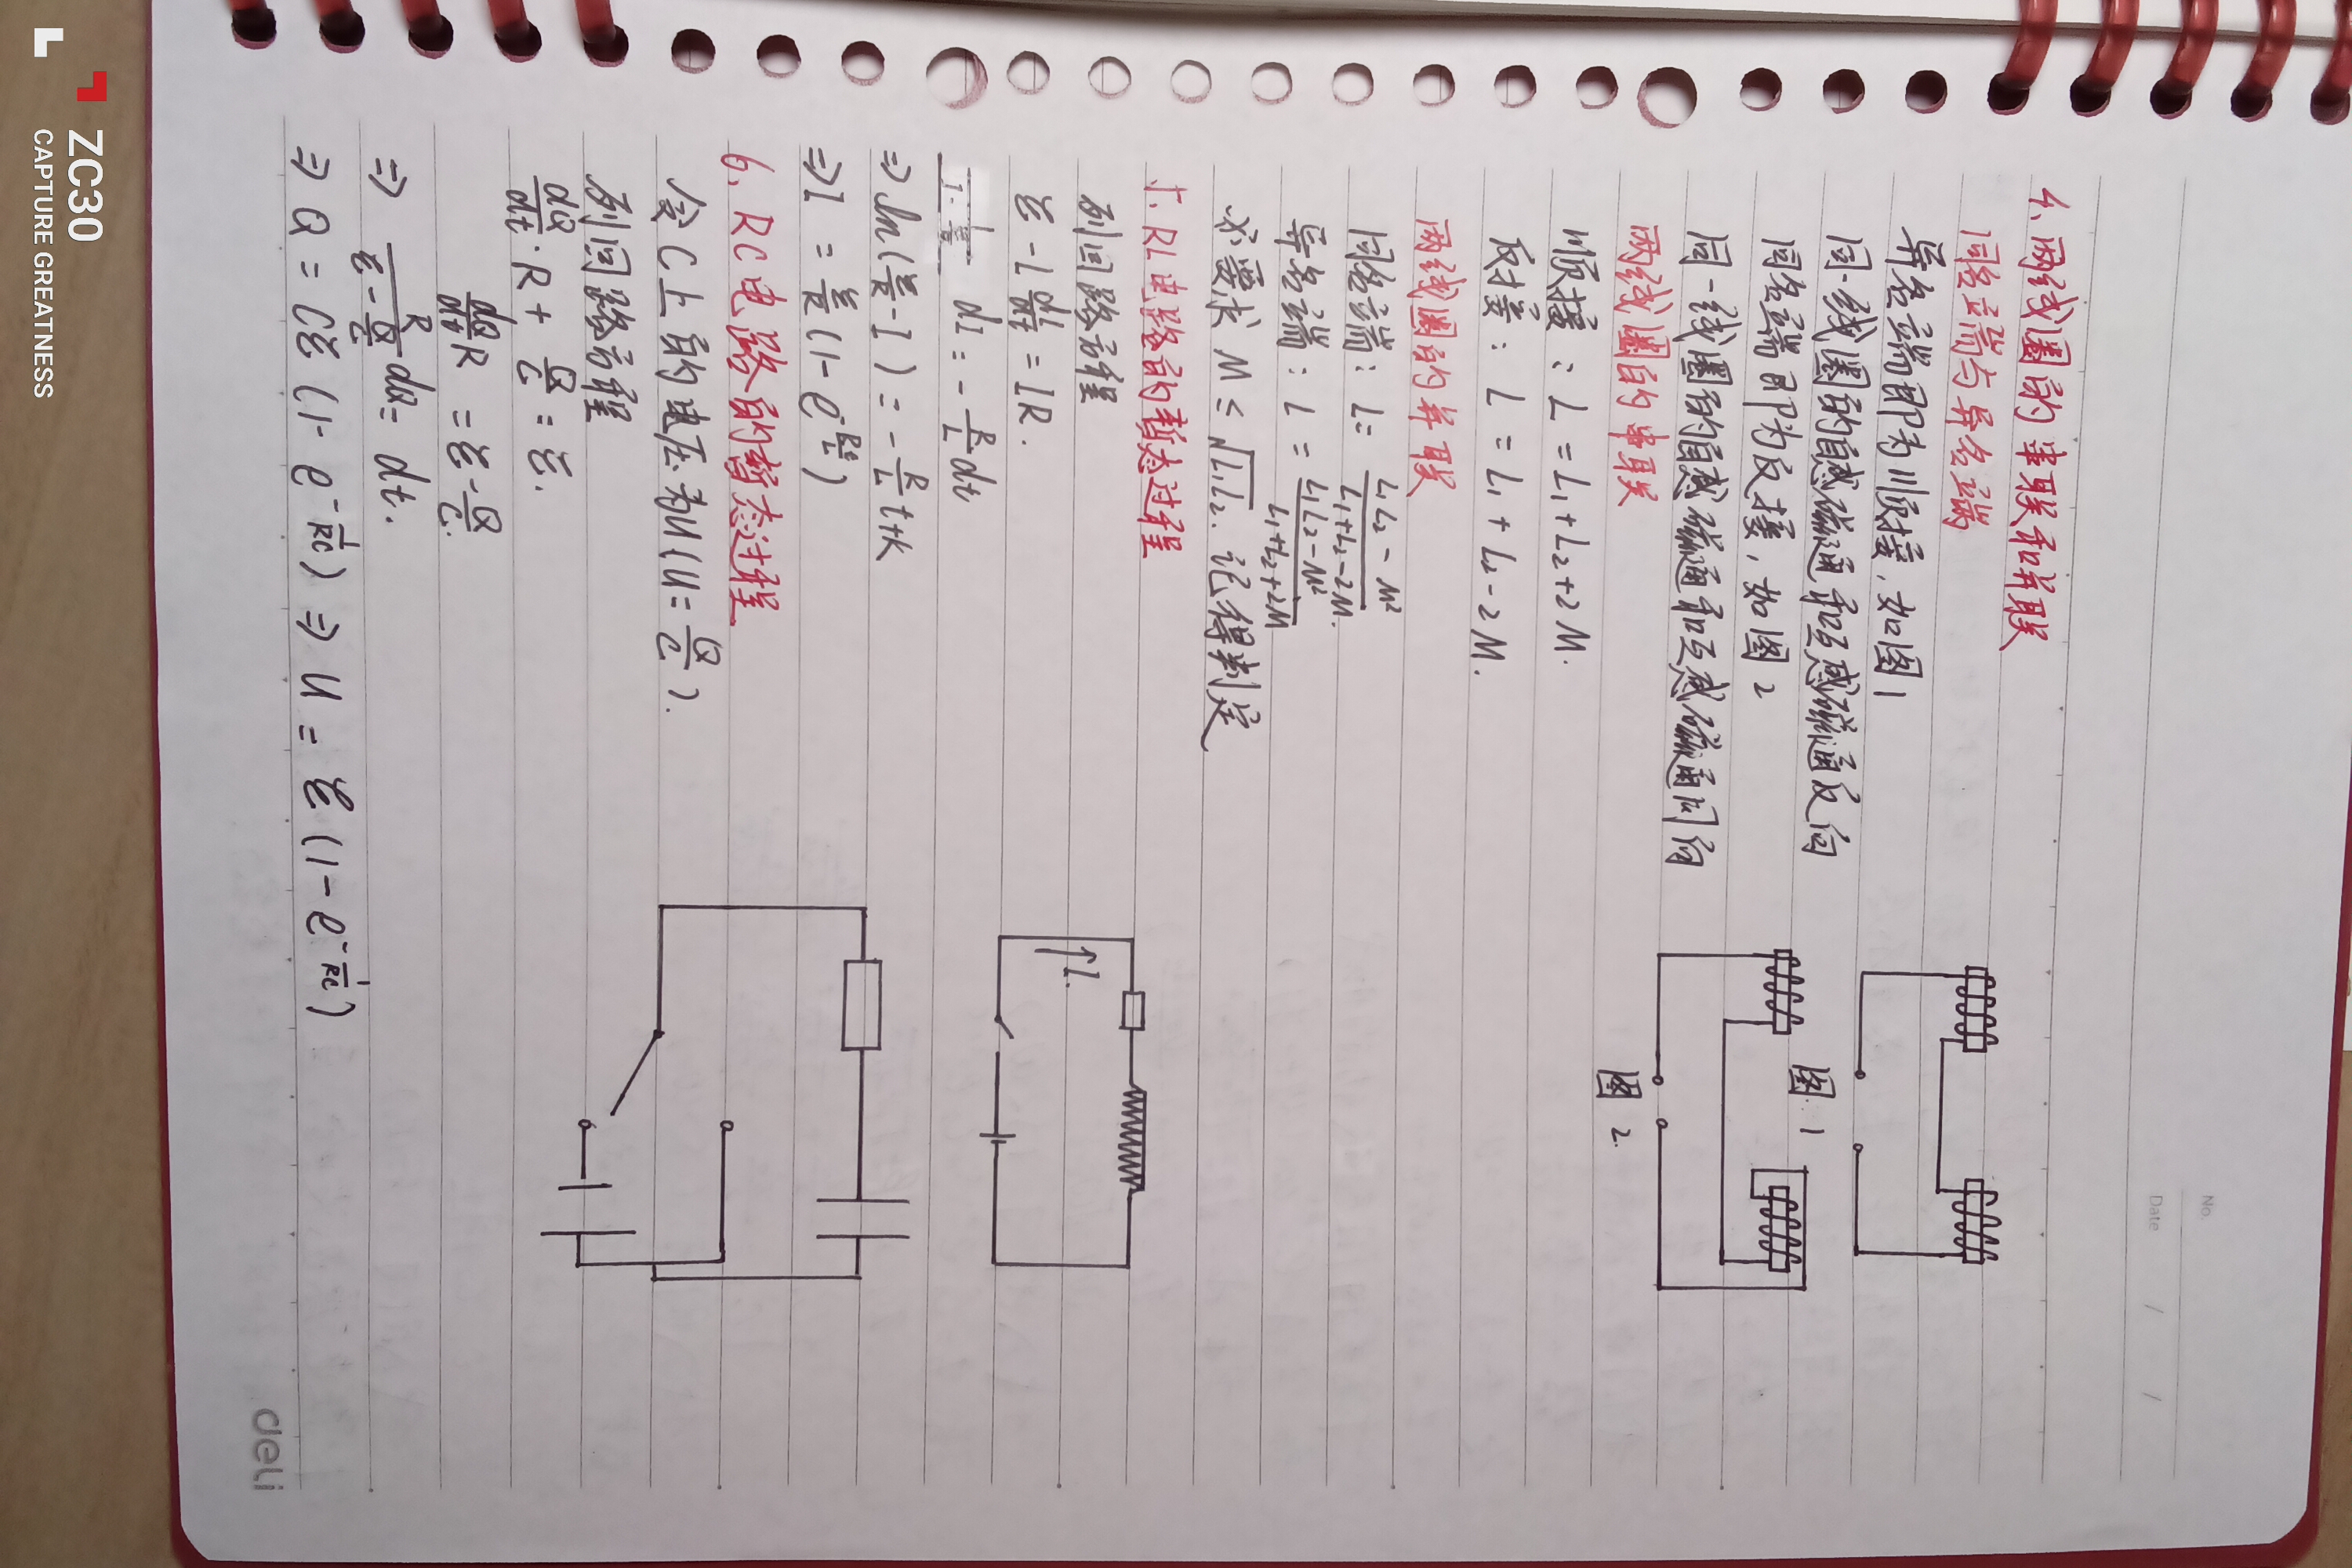 No.
Date / /
4、两线圈的串联和并联
同名端与异名端
异名端即为顺接，如图1
同一线圈的自感磁通和互感磁通反向
同名端即为反接，如图2
同一线圈的自感磁通和互感磁通同向
两线圈的串联
顺接：L=L₁+L₂+2M.
反接：L=L₁+L₂-2M.
两线圈的并联
同名端：L= (L₁L₂-M²)/(L₁+L₂-2M).
异名端：L= (L₁L₂-M²)/(L₁+L₂+2M)
必要求 M≤√L₁L₂. 记得判定
图1
图2.
5. RL电路的暂态过程
列回路方程
ℰ-L dI/dt=IR.
dI=-R/L dt
⇒ln(ℰ/R-I)=-R/L t+K
⇒I=ℰ/R(1-e
6、RC电路的暂态过程
令C上的电压为U(U=Q/C).
列回路方程
dQ/dt·R+Q/C=ℰ.
dQ/dt R=ℰ-Q/C.
⇒ R/(ℰ-Q/C) dQ=dt.
⇒ Q=Cℰ(1-e^(-1/RC))⇒U=ℰ(1-e^(-1/RC))
deli
ZC30
CAPTURE GREATNESS